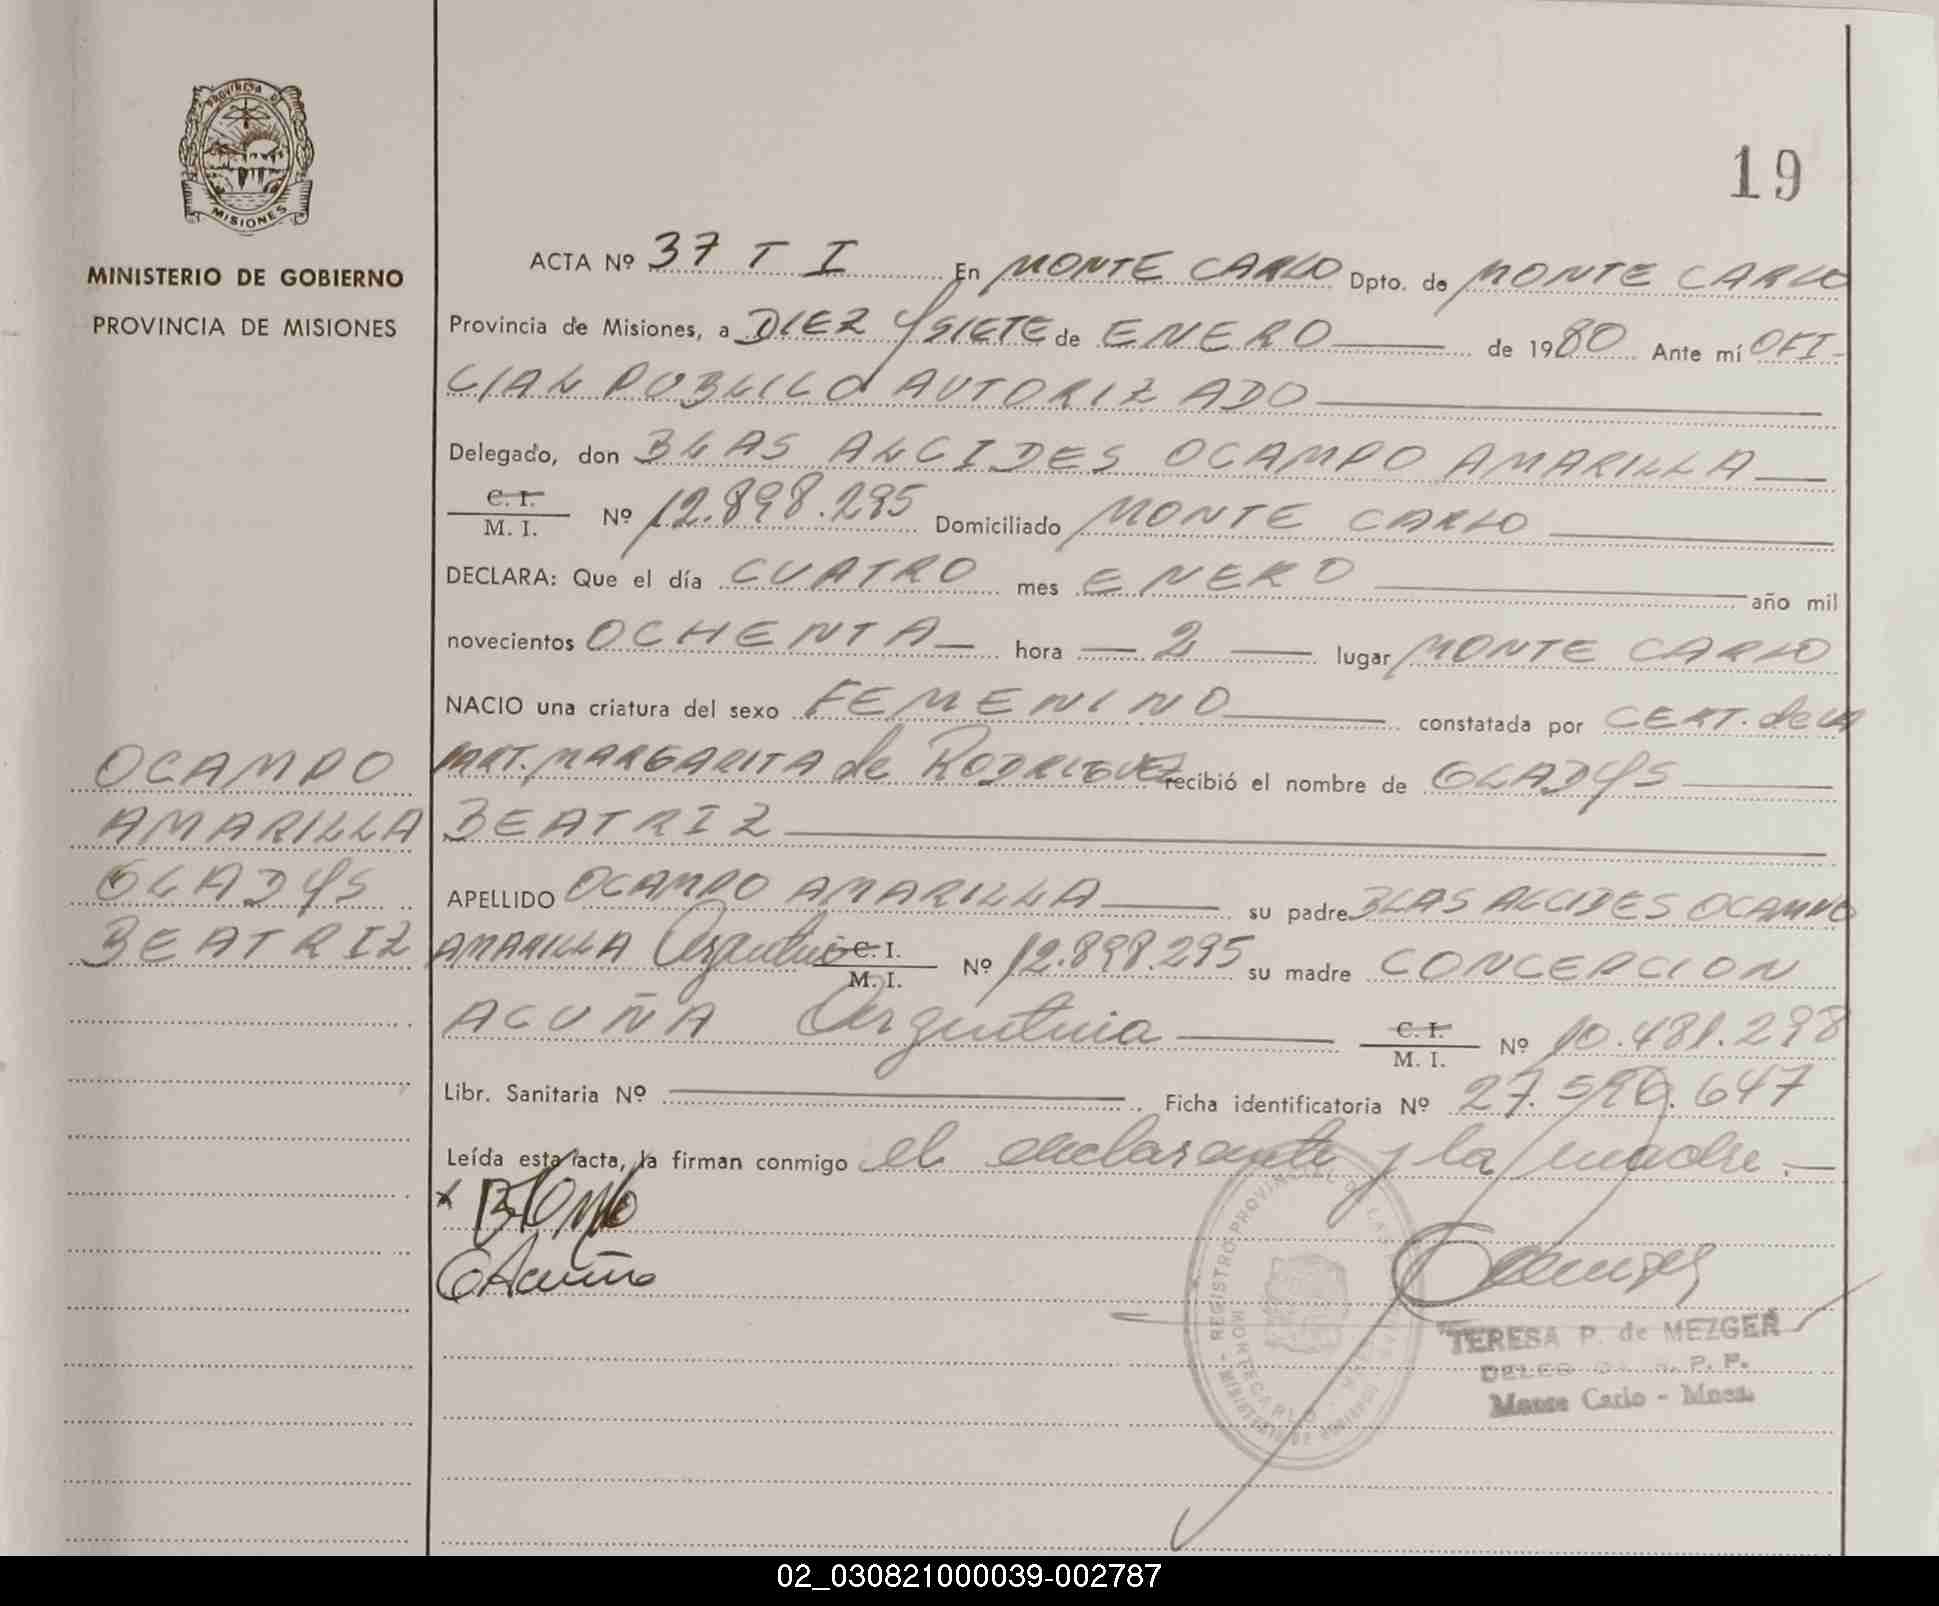 PROVINCIA DE
MISIONES
MINISTERIO DE GOBIERNO
PROVINCIA DE MISIONES
19
ACTA Nº 37 T I En MONTE CARLO Dpto. de MONTE CARLO
Provincia de Misiones, a DIEZ Y SIETE de ENERO de 1980 Ante mí OFI-
CIAL PUBLICO AUTORIZADO
Delegado, don BLAS ALCIDES OCAMPO AMARILLA
C. I.
M. I. Nº 12.898.295 Domiciliado MONTE CARLO
DECLARA: Que el día CUATRO mes ENERO año mil
novecientos OCHENTA hora 2 lugar MONTE CARLO
NACIO una criatura del sexo FEMENINO constatada por CERT. de LA
PART. MARGARITA de RODRIGUEZ recibió el nombre de GLADYS
BEATRIZ
APELLIDO OCAMPO AMARILLA su padre BLAS ALCIDES OCAMPO
AMARILLA Argentino C. I.
M. I. Nº 12.898.295 su madre CONCEPCION
ACUÑA Argentina C. I.
M. I. Nº 10.481.298
Libr. Sanitaria Nº Ficha identificatoria Nº 27.590.647
Leída esta acta, la firman conmigo el declarante y la madre.
OCAMPO
AMARILLA
GLADYS
BEATRIZ
x
CAcuña
REGISTRO PROVINCIAL DE LAS
MONTECARLO
MINISTERIO DE GOBIERNO
TERESA P. de MEZGER
DELEG P. P.
Monte Carlo - Mnes.
02_030821000039-002787